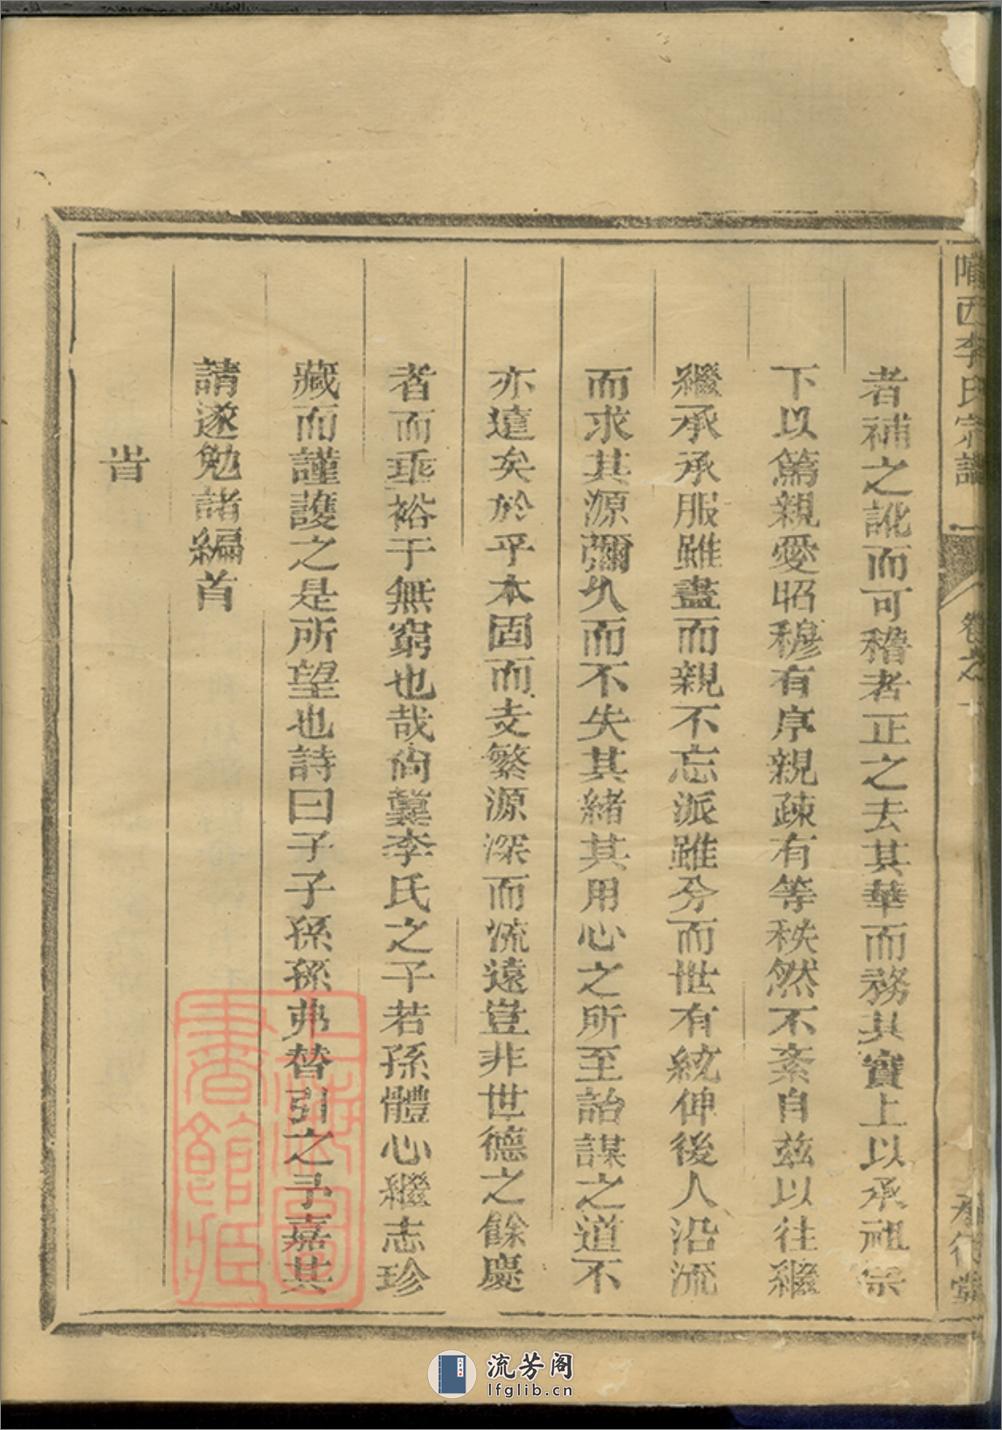 隴西李氏宗譜
卷之一
者補之訛而可稽者正之去其華而務其實上以承祖宗
下以篤親愛昭穆有序親疎有等秩然不紊自兹以往繼
繼承承服雖盡而親不忘派雖分而世有統俾後人沿流
而求其源彌久而不失其緒其用心之所至詒謀之道不
亦遠矣於乎本固而支繁源深而流遠豈非世德之餘慶
者而乖裕于無窮也哉尚冀李氏之子若孫體心繼志珍
藏而謹護之是所望也詩曰子子孫孫弗替引之予嘉其
請遂勉諸編首
旹
上海圖書館藏
流芳阁
lfglib.cn